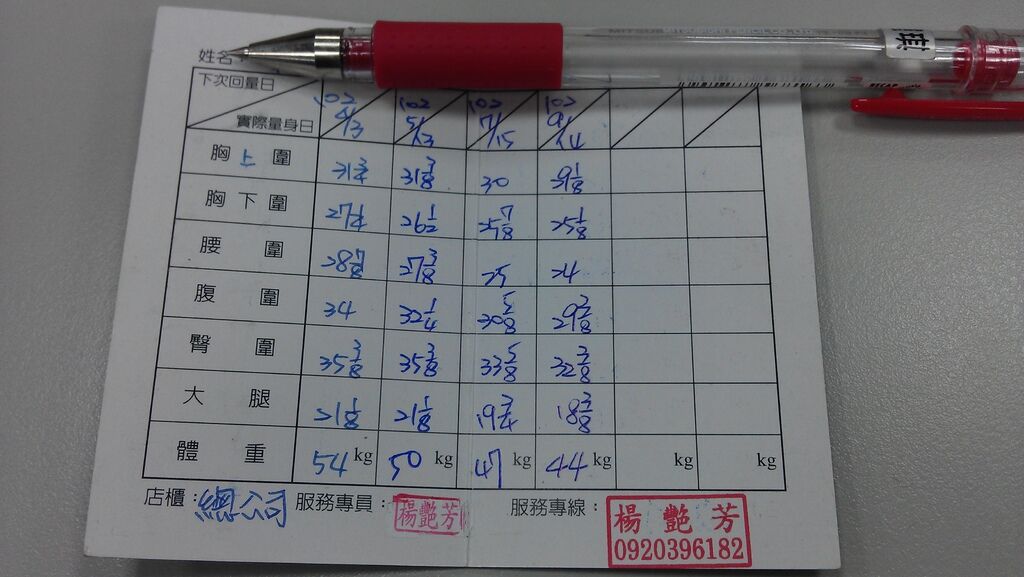 姓名
下次回量日
實際量身日 102 4/3 102 5/13 102 7/15 102 9/14
胸上圍 31 3/4 31 3/8 30 31 1/8
胸下圍 27 1/4 26 1/2 25 7/8 25 1/8
腰圍 28 7/8 27 3/8 25 24
腹圍 34 32 1/4 30 5/8 29 3/8
臀圍 35 3/8 35 3/8 33 5/8 32 3/8
大腿 21 1/8 21 1/8 19 3/4 18 3/8
體重 54 kg 50 kg 47 kg 44 kg kg kg
店櫃：總公司 服務專員：楊艷芳 服務專線：楊艷芳
0920396182
琪